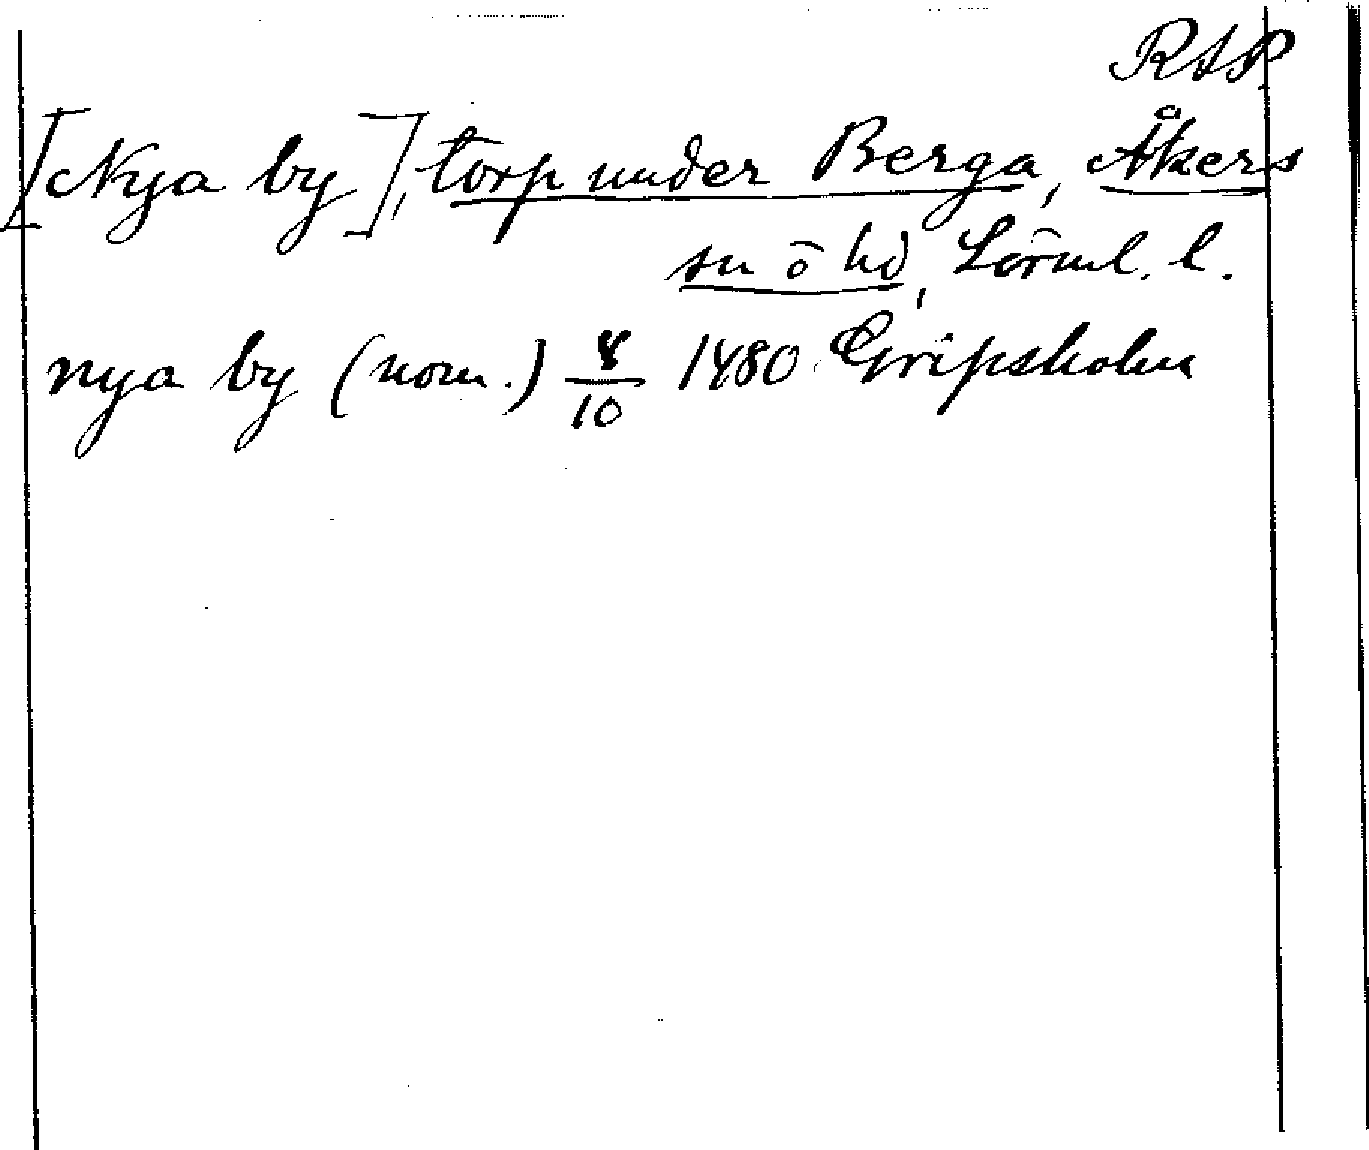 RAP.
[Nya by], torp under Berga, Åkers
sn o hd, Sörml. l.
nya by (nom.) 8/10 1480 Gripsholm